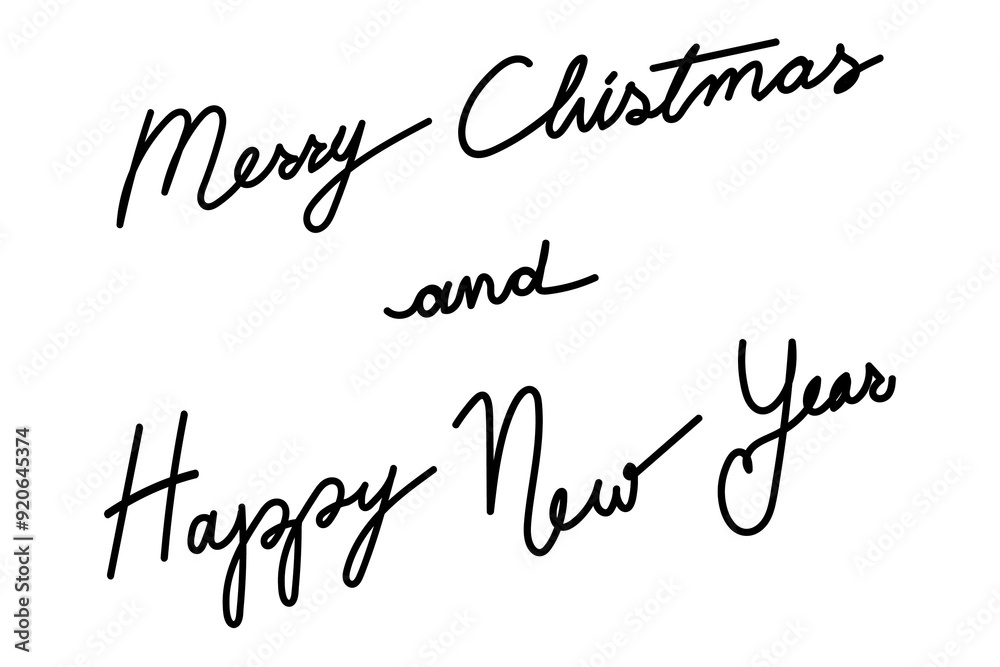 Merry Chistmas
and
Happy New Year
Adobe Stock | #920645374